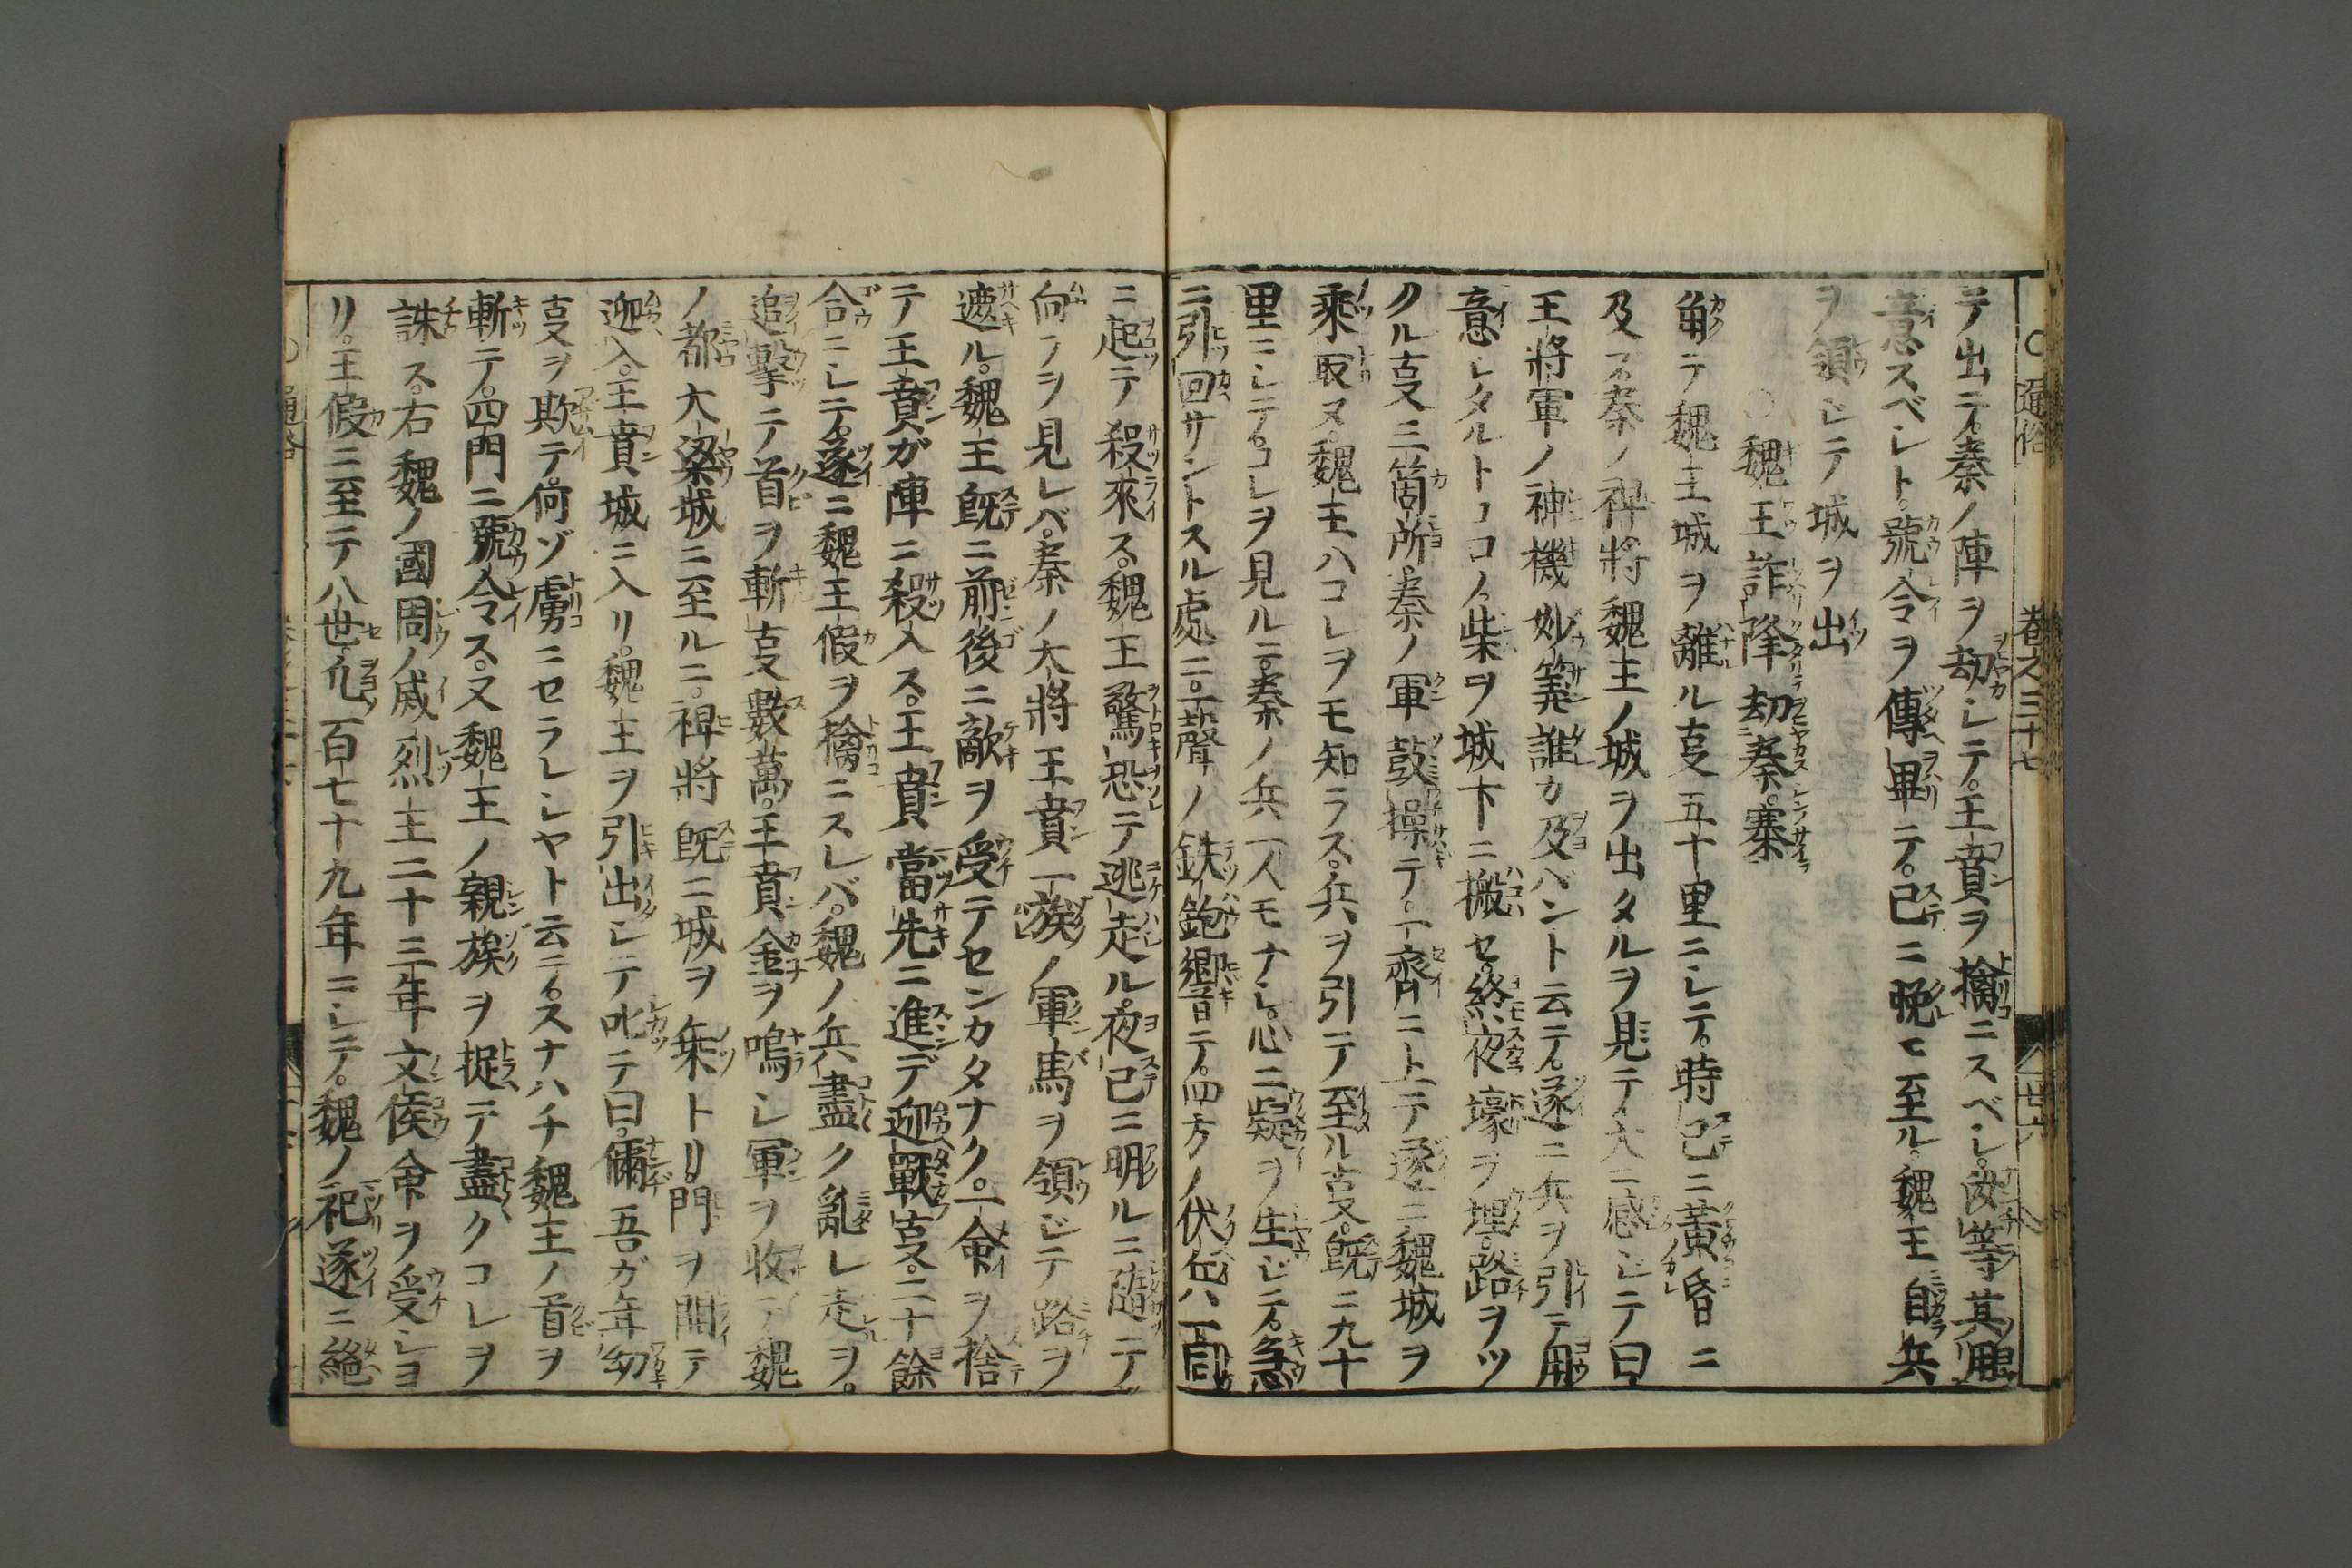 ○通俗 巻之三十七 廿六
テ出ニテ秦ノ陣ヲ劫シテ。王賁ヲ擒ニスベシ。汝等其用
意スベシト。號令ヲ傳畢テ。已ニ晩ニ至ル。魏王自兵
ヲ領シテ城ヲ出
○魏王詐降劫秦寨
角テ魏王城ヲ離ル𫝆五十里ニシテ。時已ニ黄昏ニ
及ブ秦ノ禆將魏王ノ城ヲ出タルヲ見テ大ニ感ジテ曰
王將軍ノ神機妙筭誰カ及バント云テ。遂ニ兵ヲ引テ用
意シタルトコロノ柴ヲ城下ニ搬セ。終夜壕ヲ埋。路ヲツ
クル𫝆三箇所。秦ノ軍鼓操テ。一齊ニ上テ遂ニ魏城ヲ
乘取ヌ。魏王ハコレヲモ知ラス。兵ヲ引テ至ル𫝆。既ニ九十
里ニシテ。コレヲ見ルニ。秦ノ兵一人モナシ。心ニ疑ヲ生ジテ。急
ニ引回サントスル處ニ。一聲ノ鉄鉋響テ。四方ノ伏兵八一同
ニ起テ殺來ス。魏王驚恐テ逃走ル。夜已ニ明ルニ隨テ
向フヲ見レバ。秦ノ大將王賁一族ノ軍馬ヲ領ジテ路ヲ
遮ル。魏王既ニ前後ニ敵ヲ受テセンカタナク。一命ヲ捨
テ王賁ガ陣ニ殺入ス。王賁當先ニ進デ迎戰𫝆。二十餘
合ニシテ。遂ニ魏王假ヲ擒ニスレバ。魏ノ兵盡ク亂レ走ヲ。
追撃テ首ヲ斬𫝆數萬。王賁金ヲ鳴シ軍ヲ收テ魏
ノ都大梁城ニ至ルニ。禆將既ニ城ヲ乗トリ。門ヲ開テ
迎入。王賁城ニ入リ。魏王ヲ引出シテ叱テ曰。儞吾ガ年幼
𫝆ヲ欺テ。何ゾ虜ニセラレシヤト云テ。スナハチ魏王ノ首ヲ
斬テ。四門ニ號令ス。又魏王ノ親族ヲ捉テ盡クコレヲ
誅ス。右魏ノ國周ノ威烈王二十三年文侯命ヲ受シヨ
リ。王假ニ至テ八世。凡百七十九年ニシテ。魏ノ祀遂ニ絶